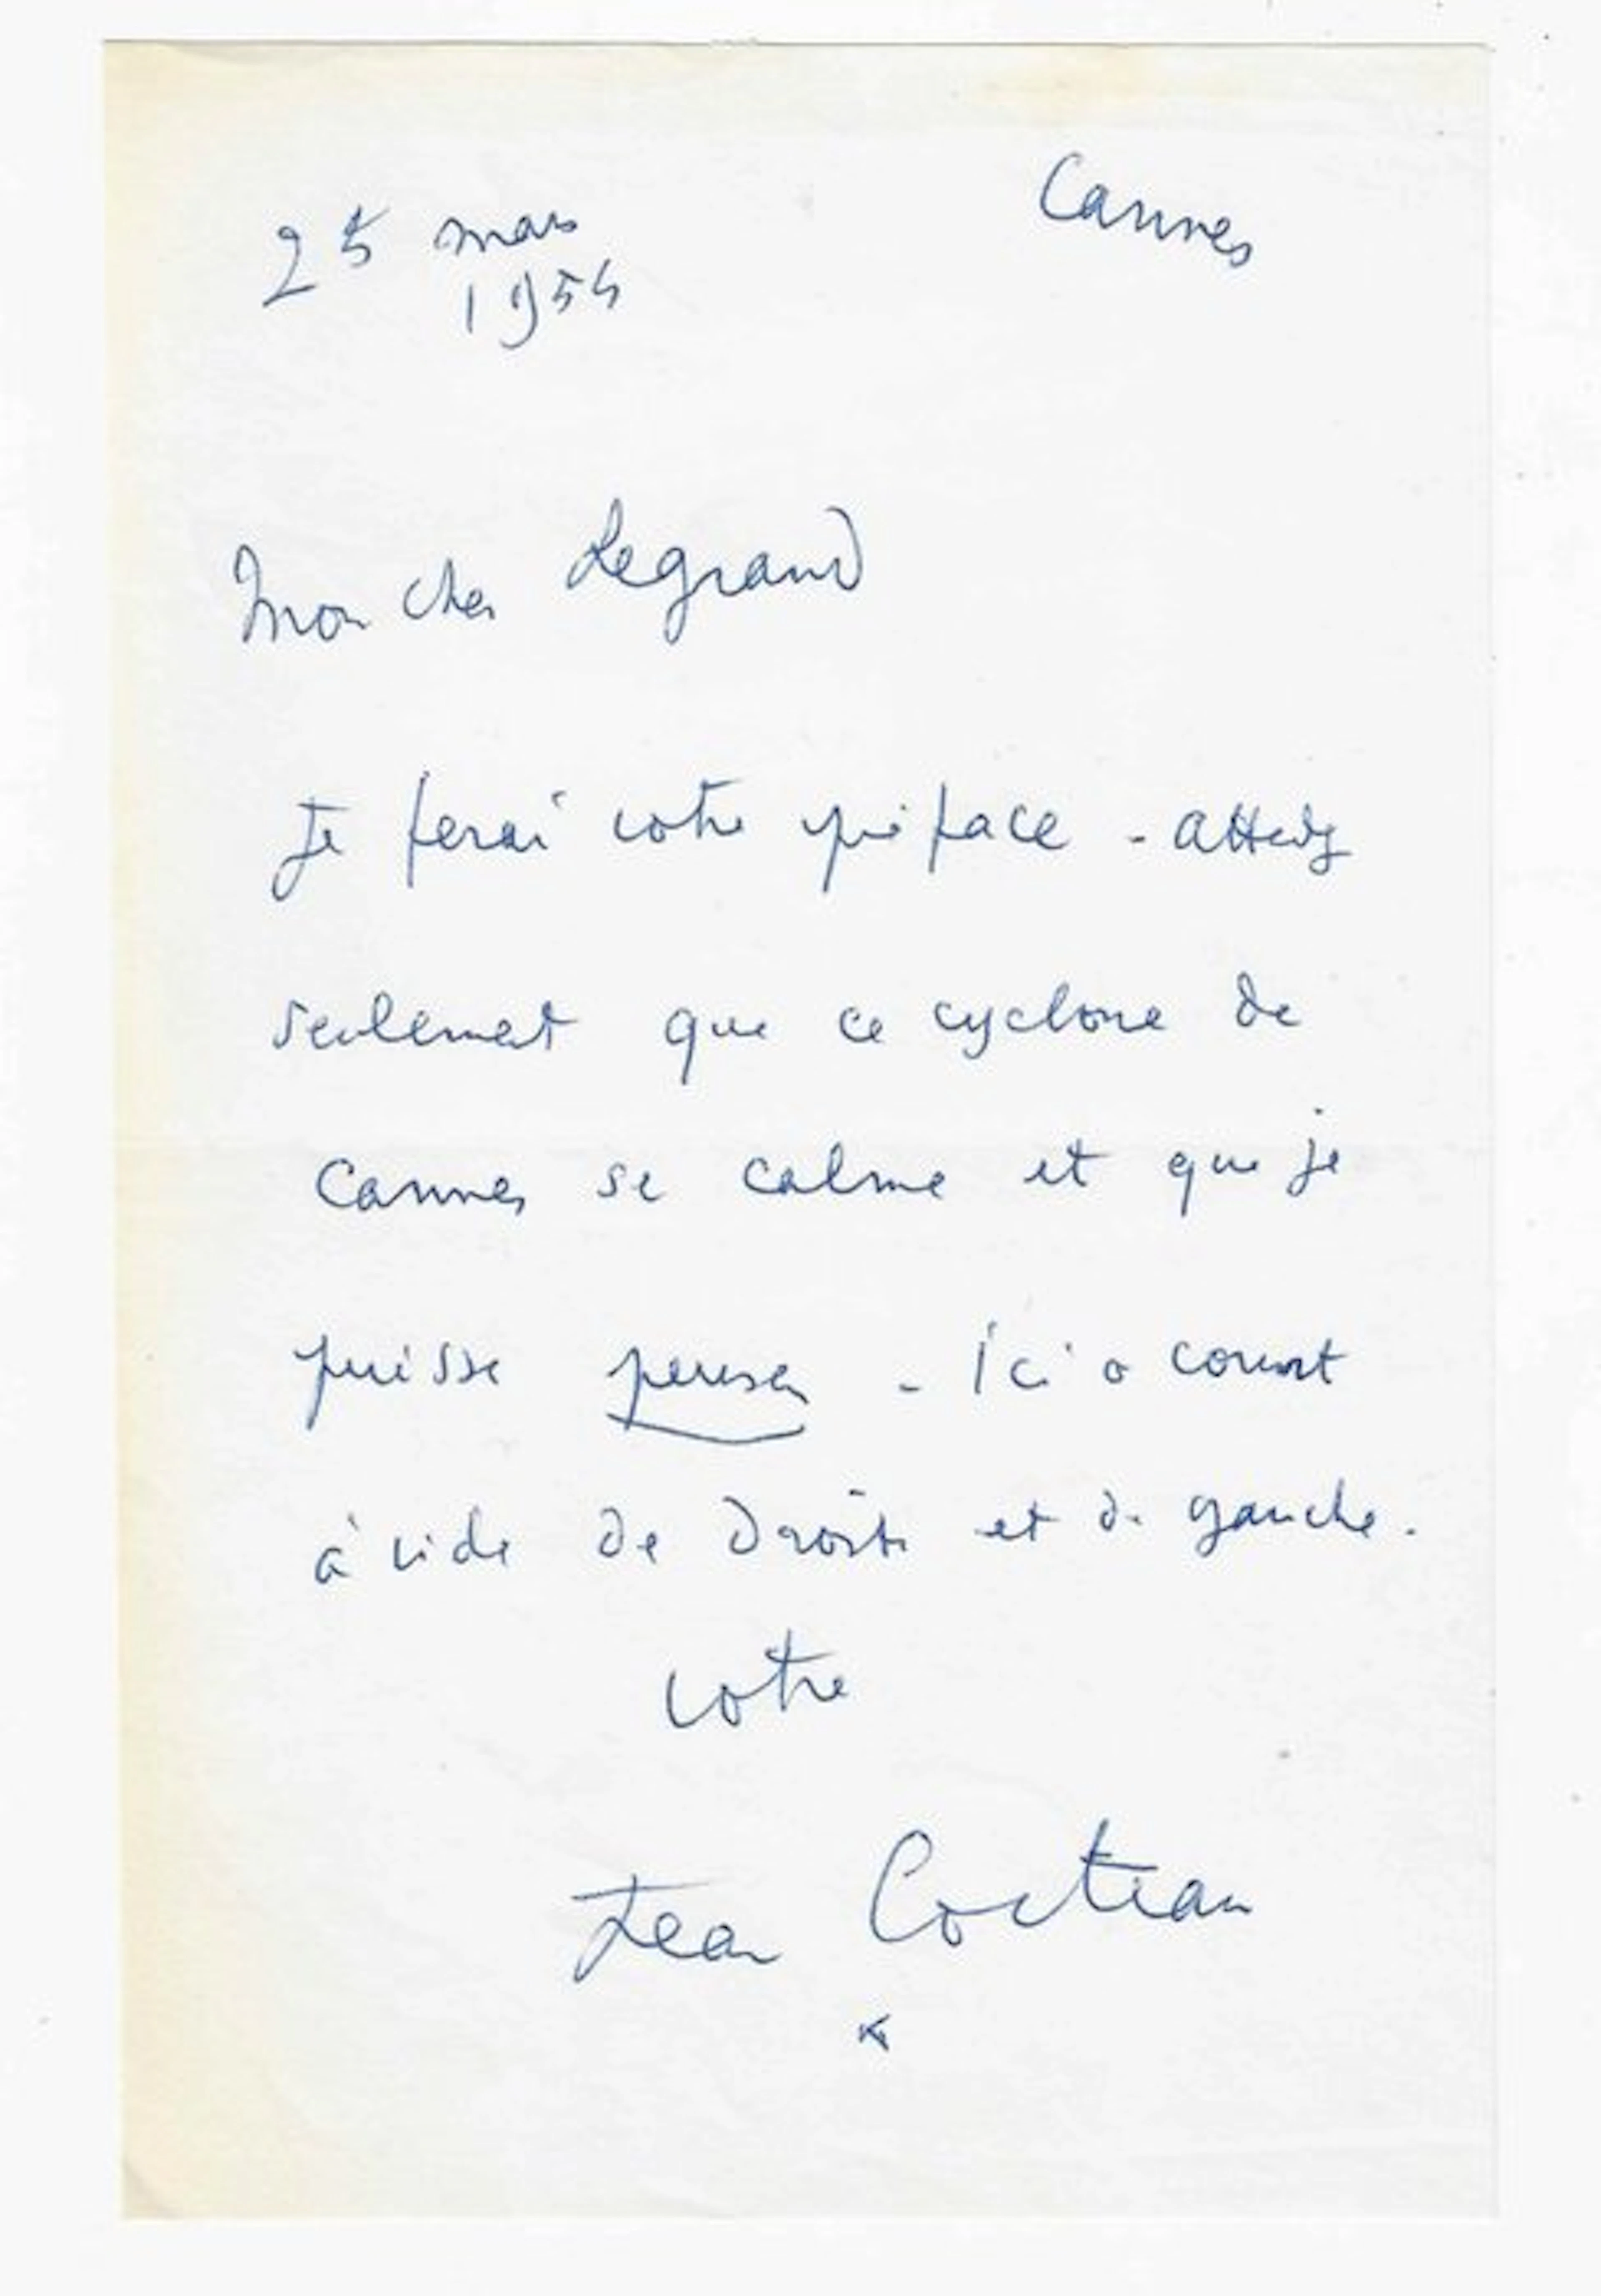 Cannes
25 mars
1954
Mon cher Legrand
Je ferai votre préface - attendez
seulement que ce cyclone de
Cannes se calme et que je
puisse penser - Ici on court
à vide de droite et de gauche.
votre
Jean Cocteau
*